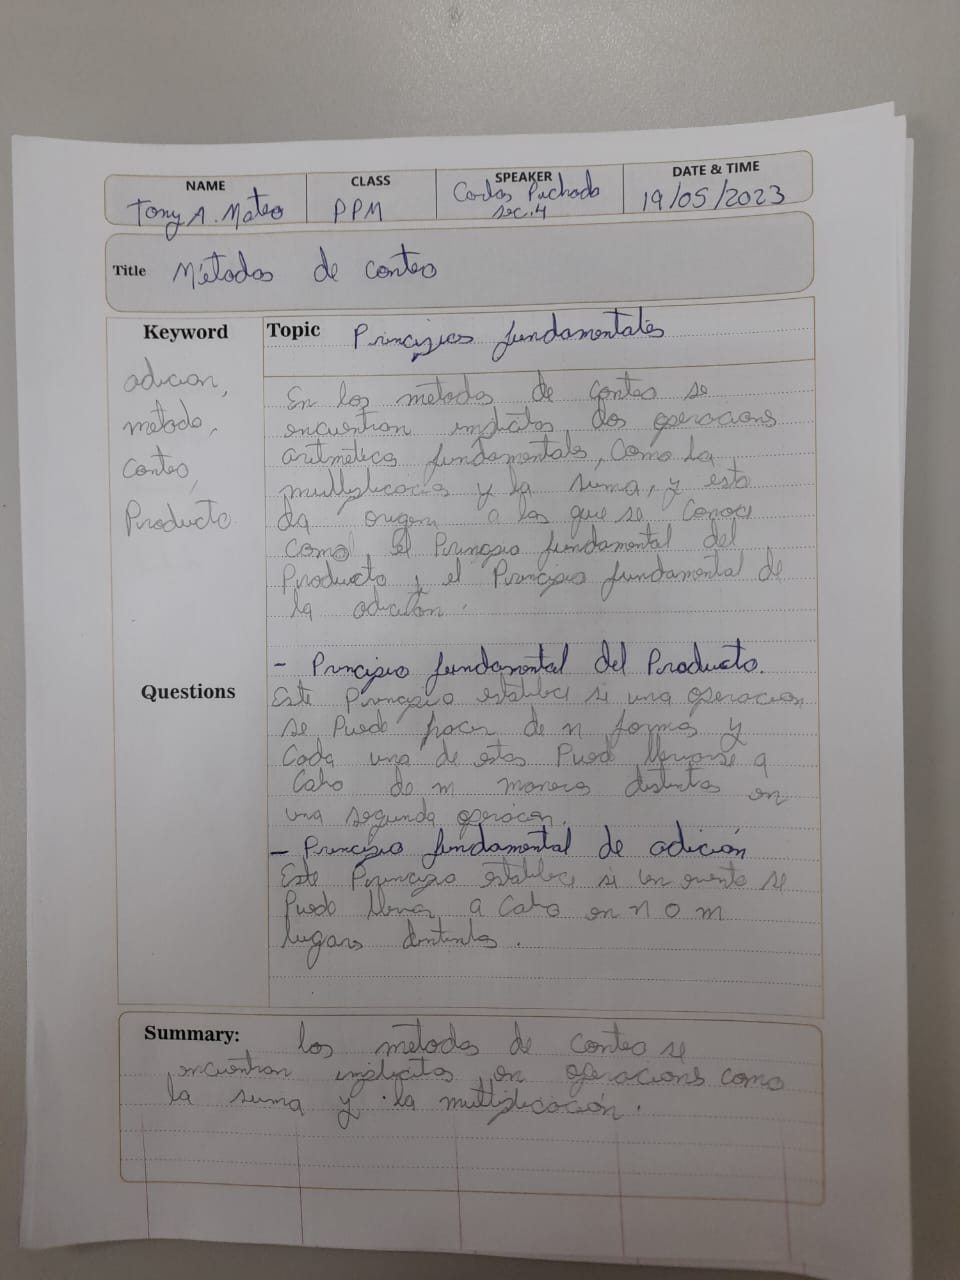 NAME CLASS SPEAKER DATE & TIME
Tony A. Mateo PPM Carlos Pichardo 19/05/2023
sec. 4
Title Métodos de conteo
Keyword Topic Principios fundamentales
adicion,
metodo,
Conteo,
Producto
En los metodos de Conteo se
encuentran implicitos dos operaciones
aritmética fundamentales, Como la
multiplicación y la suma, y esto
da origen a los que se Conoce
Como el Principio fundamental del
Producto y el Principio fundamental de
la adición.
- Principio fundamental del Producto.
Questions
Este Principio establece si una operacion
se Puede hacer de n formas y
Cada una de estas Puede llevarse a
Cabo de m manera distintas en
una segunda operacion.
- Principio fundamental de adición
Este Principio establece si un evento se
Puede llevar a Cabo en n o m
lugares
Summary: los metodos de Conteo se
encuentran implicitos en operaciones como
la suma y la multiplicación.